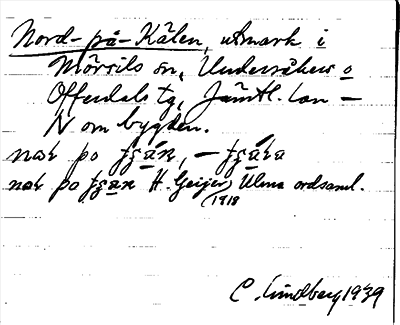 Nord-på-Kälen, utmark i
Mörsils sn, Undersåkers o
Offerdals tg, Jämtl. län —
N om bygden.
nɷr po
nɷr po H. Geijer, Ulma ordsaml.
1918
C. Lindberg 1939